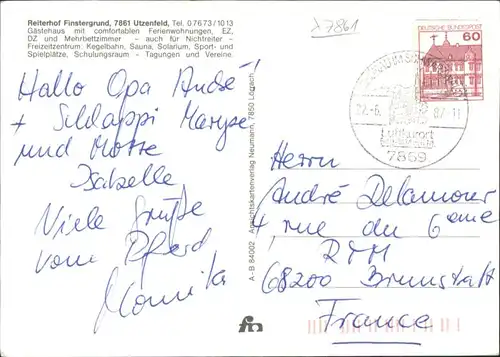 Reiterhof Finstergrund, 7861 Utzenfeld, Tel. 0 76 73 / 10 13
Gästehaus mit comfortablen Ferienwohnungen, EZ,
DZ und Mehrbettzimmer - auch für Nichtreiter -
Freizeitzentrum: Kegelbahn, Sauna, Solarium, Sport- und
Spielplätze, Schulungsraum - Tagungen und Vereine.
7861
Hallo Opa André
+ Schlappi Maryse
und Motte
Isabelle
Viele Grüße
vom Pferd
Monika
A.-B 84002 Ansichtskartenverlag Neumann, 7850 Lörrach
DEUTSCHE BUNDESPOST
60
22.-6. 87-11
Luftkurort
7869
Herrn
André Delamour
4 rue du 6 eme
RTM
68200 Brunstatt
France